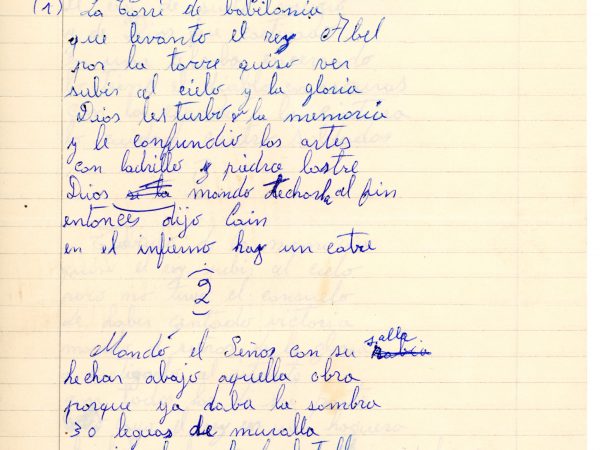 (1) La Torre de babilonia
que levanto el rey Abel
por la torre quiso ver
subir al cielo y la gloria
Dios les turbo la memoria
y le confundio las artes
con ladrillo y piedra lastre
Dios mando hecharla al fin
entonces dijo Cain
en el infierno hay un catre
2
Mandó el Señor con su salla
hechar abajo aquella obra
porque ya daba la sombra
30 leguas de muralla